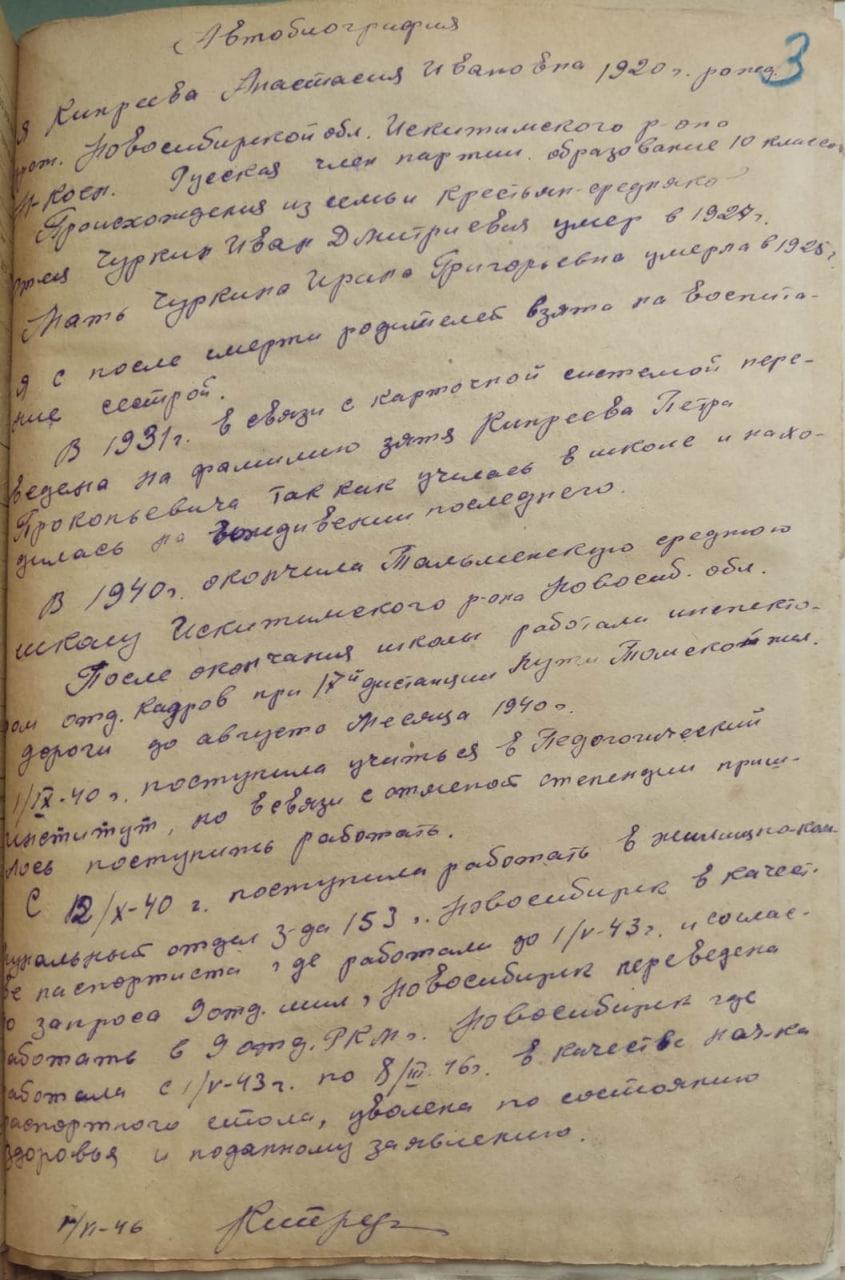 Автобиография
3
Я Кипреева Анастасия Ивановна 1920 г. рожд.
Новосибирской обл. Искитимского р-она
Русская член партии. образование 10 классов
Происхождения из семьи крестьян-середняко
Чуркин Иван Дмитриевич умер в 1927г.
Мать Чуркина Ирина Григорьевна умерла в 1925г.
Я с после смерти родителей взята на воспита-
ние сестрой.
В 1931г. в связи с карточной системой пере-
ведена на фамилию зятя Кипреева Петра
Прокопьевича так как училась в школе и нахо-
дилась на иждивении последнего.
В 1940г. окончила Тальменскую среднюю
школу Искитимского р-она Новосиб. обл.
После окончания школы работали инспекто-
ром отд. кадров при 17й дистанции пути Томской жел.
дороги до августа месяца 1940г.
1/IX-40 г. поступила учиться в Педогогический
институт, но в связи с отменой степендии приш-
лось поступить работать.
С 12/X-40 г. поступила работать в жилищно-ком
мунальный отдел з-да 153 г. Новосибирск в качест-
ве паспортиста где работали до 1/V-43г. и соглас-
о запроса 9 отд. мил. г. Новосибирск переведена
работать в 9 отд. РКМ г. Новосибирск где
работала с 1/V-43г. по 8/III-46г. в качестве нач-ка
паспортного стола, уволена по состоянию
здоровья и поданному заявлению.
/VI-46